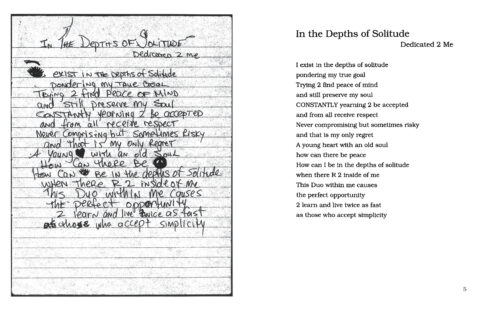 In The Depths Of Solitude
Dedicated 2 me
exist in the depths of Solitude
pondering my true goal
Trying 2 find peace of mind
and still preserve my soul
CONSTANTLY yearning 2 be accepted
and from all receive respect
Never comprising but sometimes risky
and that is my only regret
A young with an old soul
How can there be
How can be in the depths of Solitude
when there R 2 inside of me
This Duo within me causes
the perfect opportunity
2 learn and live twice as fast
as those who accept simplicity
In the Depths of Solitude
Dedicated 2 Me
I exist in the depths of solitude
pondering my true goal
Trying 2 find peace of mind
and still preserve my soul
CONSTANTLY yearning 2 be accepted
and from all receive respect
Never compromising but sometimes risky
and that is my only regret
A young heart with an old soul
how can there be peace
How can I be in the depths of solitude
when there R 2 inside of me
This Duo within me causes
the perfect opportunity
2 learn and live twice as fast
as those who accept simplicity
5